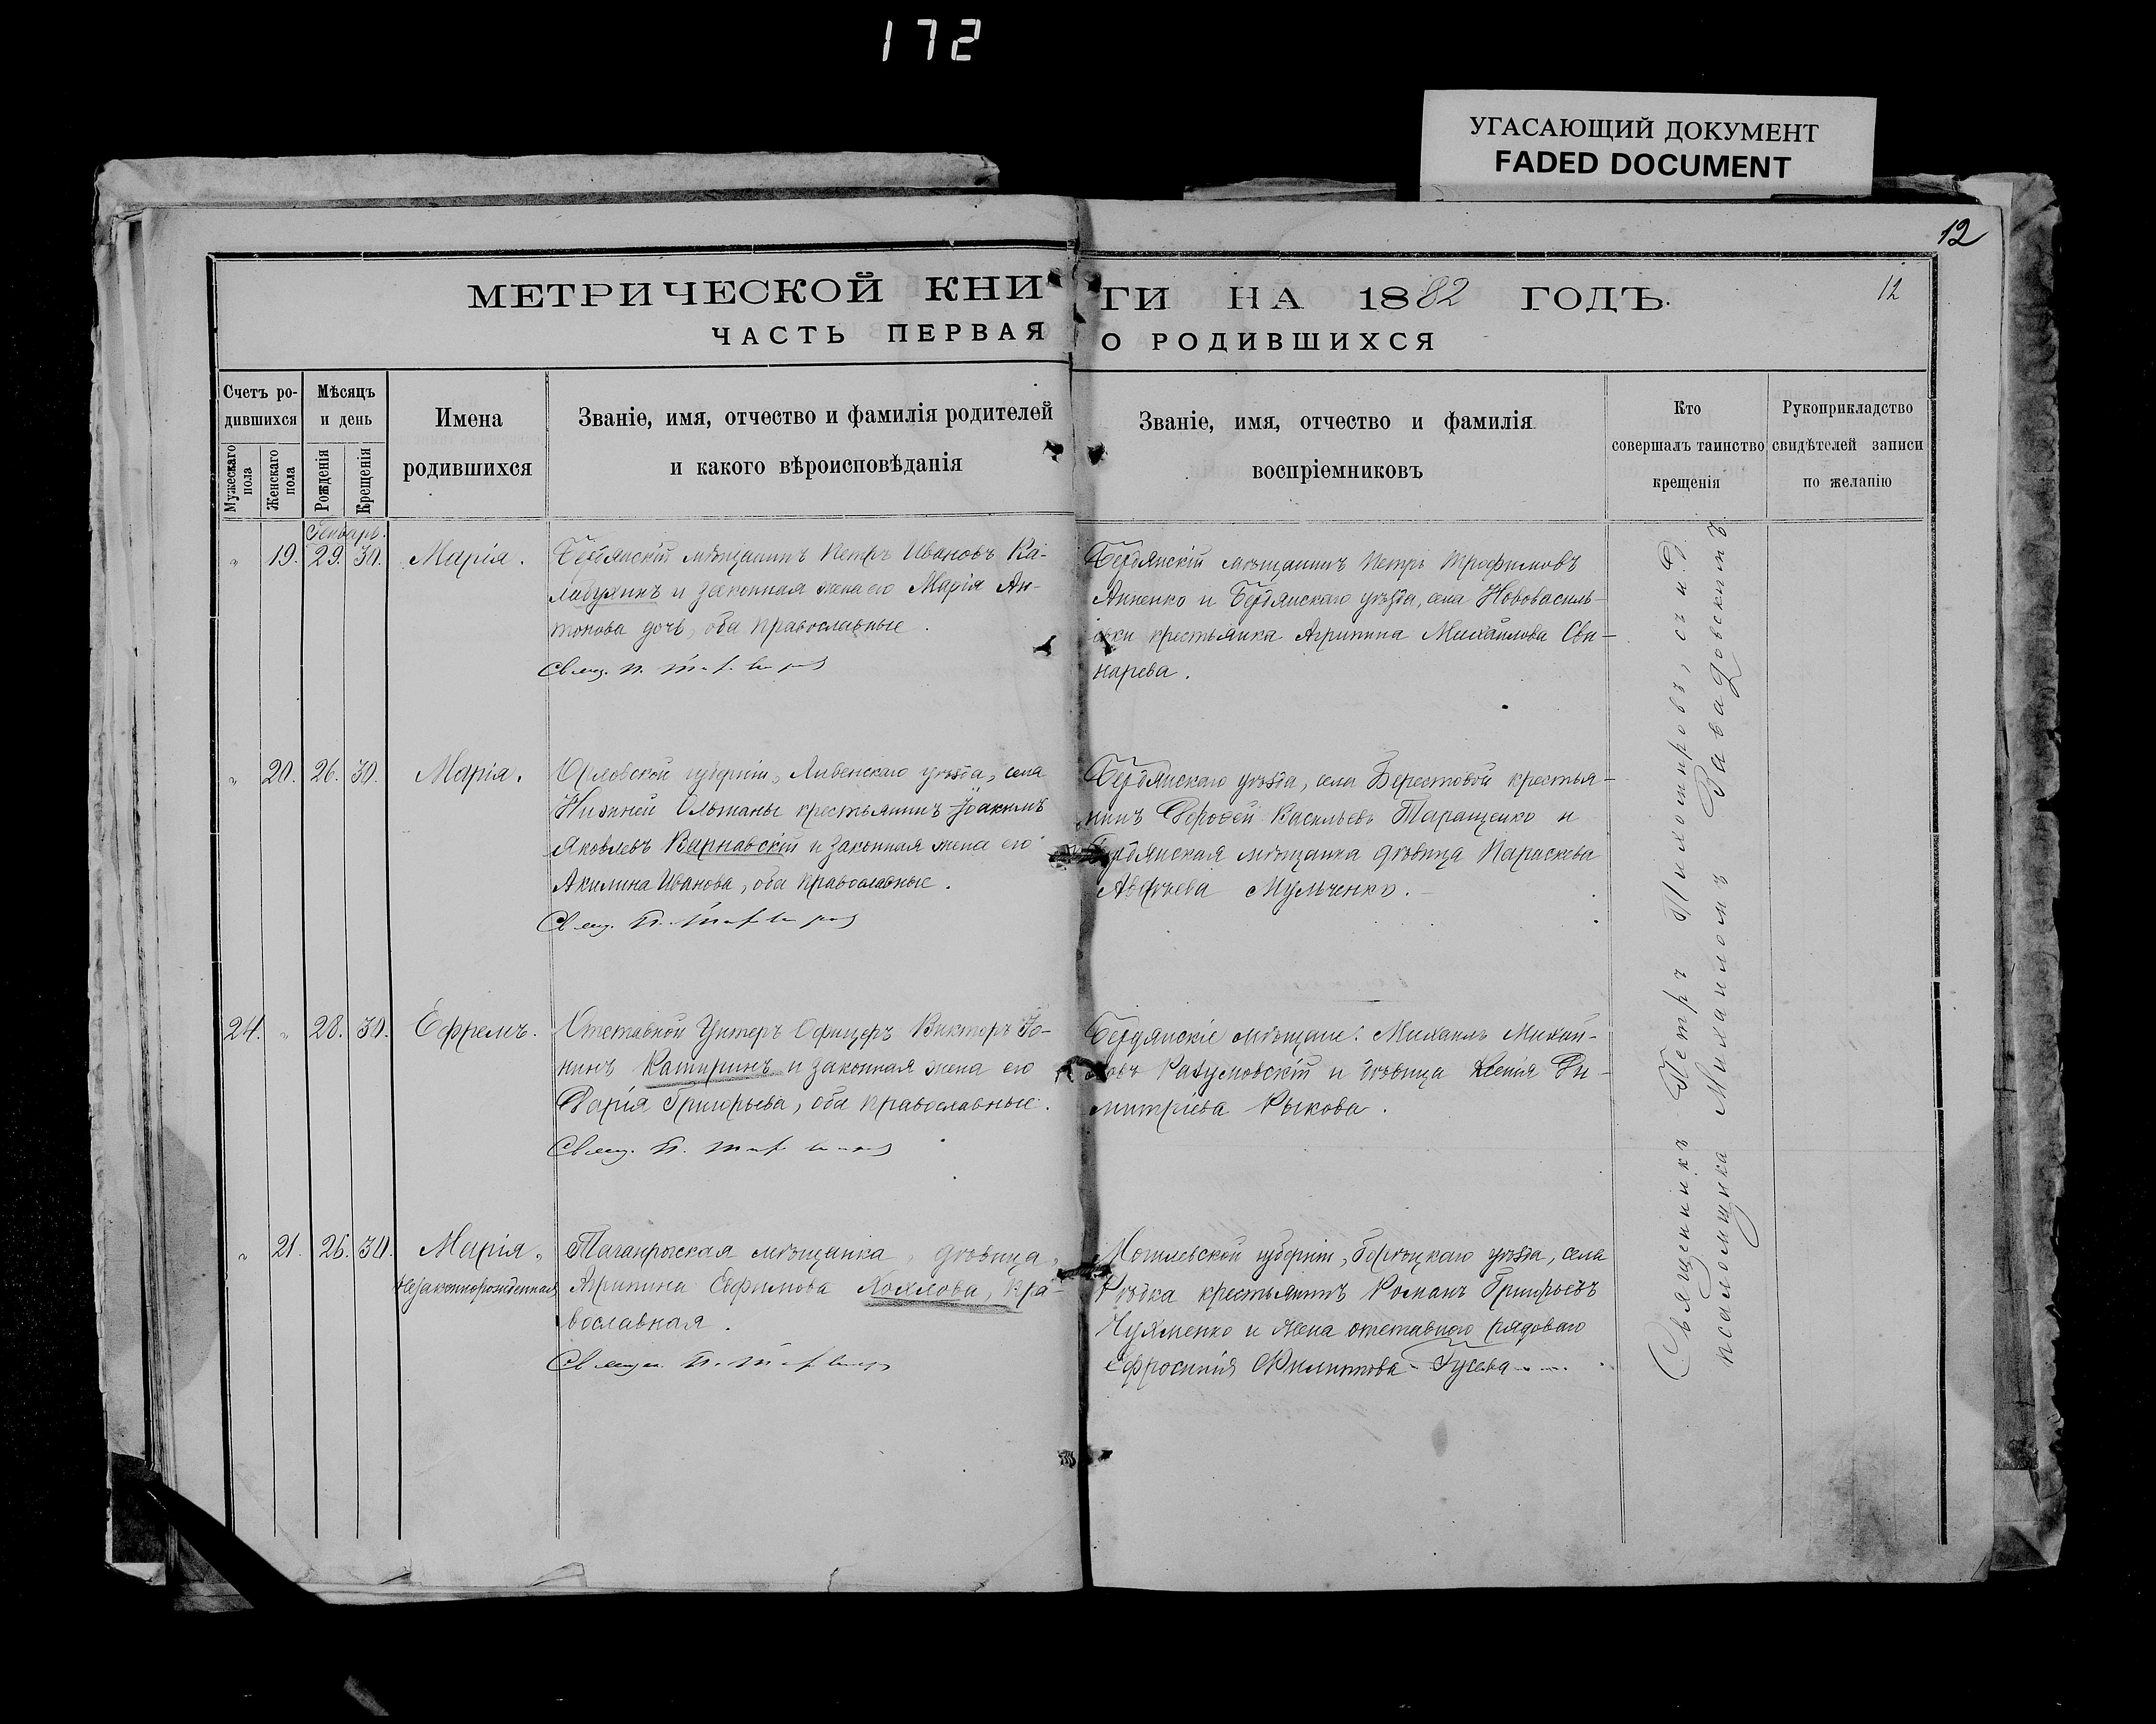 172
УГАСАЮЩИЙ ДОКУМЕНТ
FADED DOCUMENT
12
МЕТРИЧЕСКОЙ КНИГИ НА 1882 ГОДЪ.
12
ЧАСТЬ ПЕРВАЯ О РОДИВШИХСЯ
Счетъ ро-
дившихся
Мужескаго
пола
Женскаго
пола
Мѣсяцъ
и день
Рожденія
Крещенія
Имена
родившихся
Званіе, имя, отчество и фамилія родителей
и какого вѣроисповѣданія
Званіе, имя, отчество и фамилія
воспріемниковъ
Кто
совершалъ таинство
крещенія
Рукоприкладство
свидѣтелей записи
по желанію
Генварь.
„ 19. 29. 30. Марія.
Бердянскій мѣщанинъ Петръ Ивановъ Ка-
лабухинъ и законная жена его Марія Ан-
тонова дочь, оба православные.
Свящ. П.
Бердянскій мѣщанинъ Петръ Трофимовъ
Анненко и Бердянскаго уѣзда, села Нововасиль-
евки крестьянка Агрипина Михайлова Сви-
нарева.
„ 20. 26. 30. Марія.
Орловской губерніи, Ливенскаго уѣзда, села
Нижней Ольшаны крестьянинъ Іоакимъ
Яковлевъ Варнавскій и законная жена его
Акилина Иванова, оба православные.
Свящ. П.
Бердянскаго уѣзда, села Берестовой крестья-
нинъ Дорофей Васильевъ Таращенко и
Бердянская мѣщанка дѣвица Параскева
Авдѣева Мульченко.
24. „ 28. 30. Ефремъ.
Отставной Унтеръ Офицеръ Викторъ Іо-
нинъ Катиринъ и законная жена его
Дарія Григорьева, оба православные.
Свящ. П.
Бердянскіе мѣщане: Михаилъ Михай-
ловъ Разумовскій и дѣвица Ксенія Ди-
митріева Рыкова.
„ 21. 26. 30. Марія,
незаконнорожденная
Таганрогская мѣщанка, дѣвица,
Агрипина Евфимова Хохлова, пра-
вославная.
Священ. П.
Могилевской губерніи, Горѣцкаго уѣзда, села
Рѣдка крестьянинъ Романъ Григорьевъ
и жена отставного рядоваго
Ефросинія Филиппова Гусева
Священникъ Петръ Тихомировъ, съ и. д.
псаломщика Михаиломъ Завадовскимъ